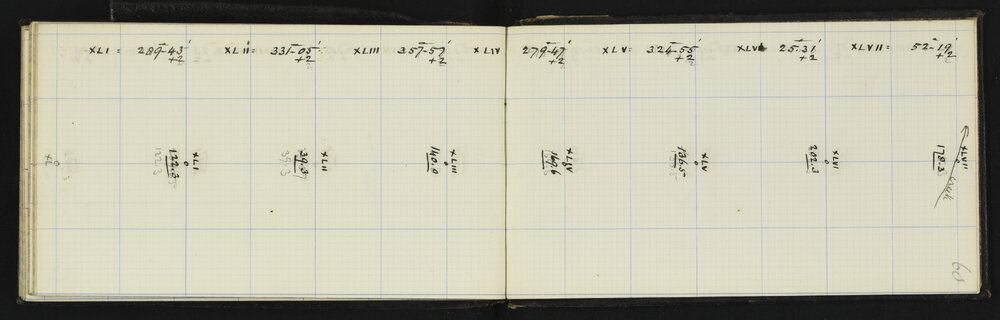 XLI = 289-45' XLII = 331-05' XLIII 357-57' XLIV 279-47' XLV = 324-55' XLVI 25.31' XLVII = 52-19'
+2 +2 +2 +2 +2 +2 +2
XL
XLI
122.3
122.3
XLII
39.3
39.3
XLIII
140.0
XLIV
XLV
136.5
XLVI
202.3
XLVII
178.3
creek
60